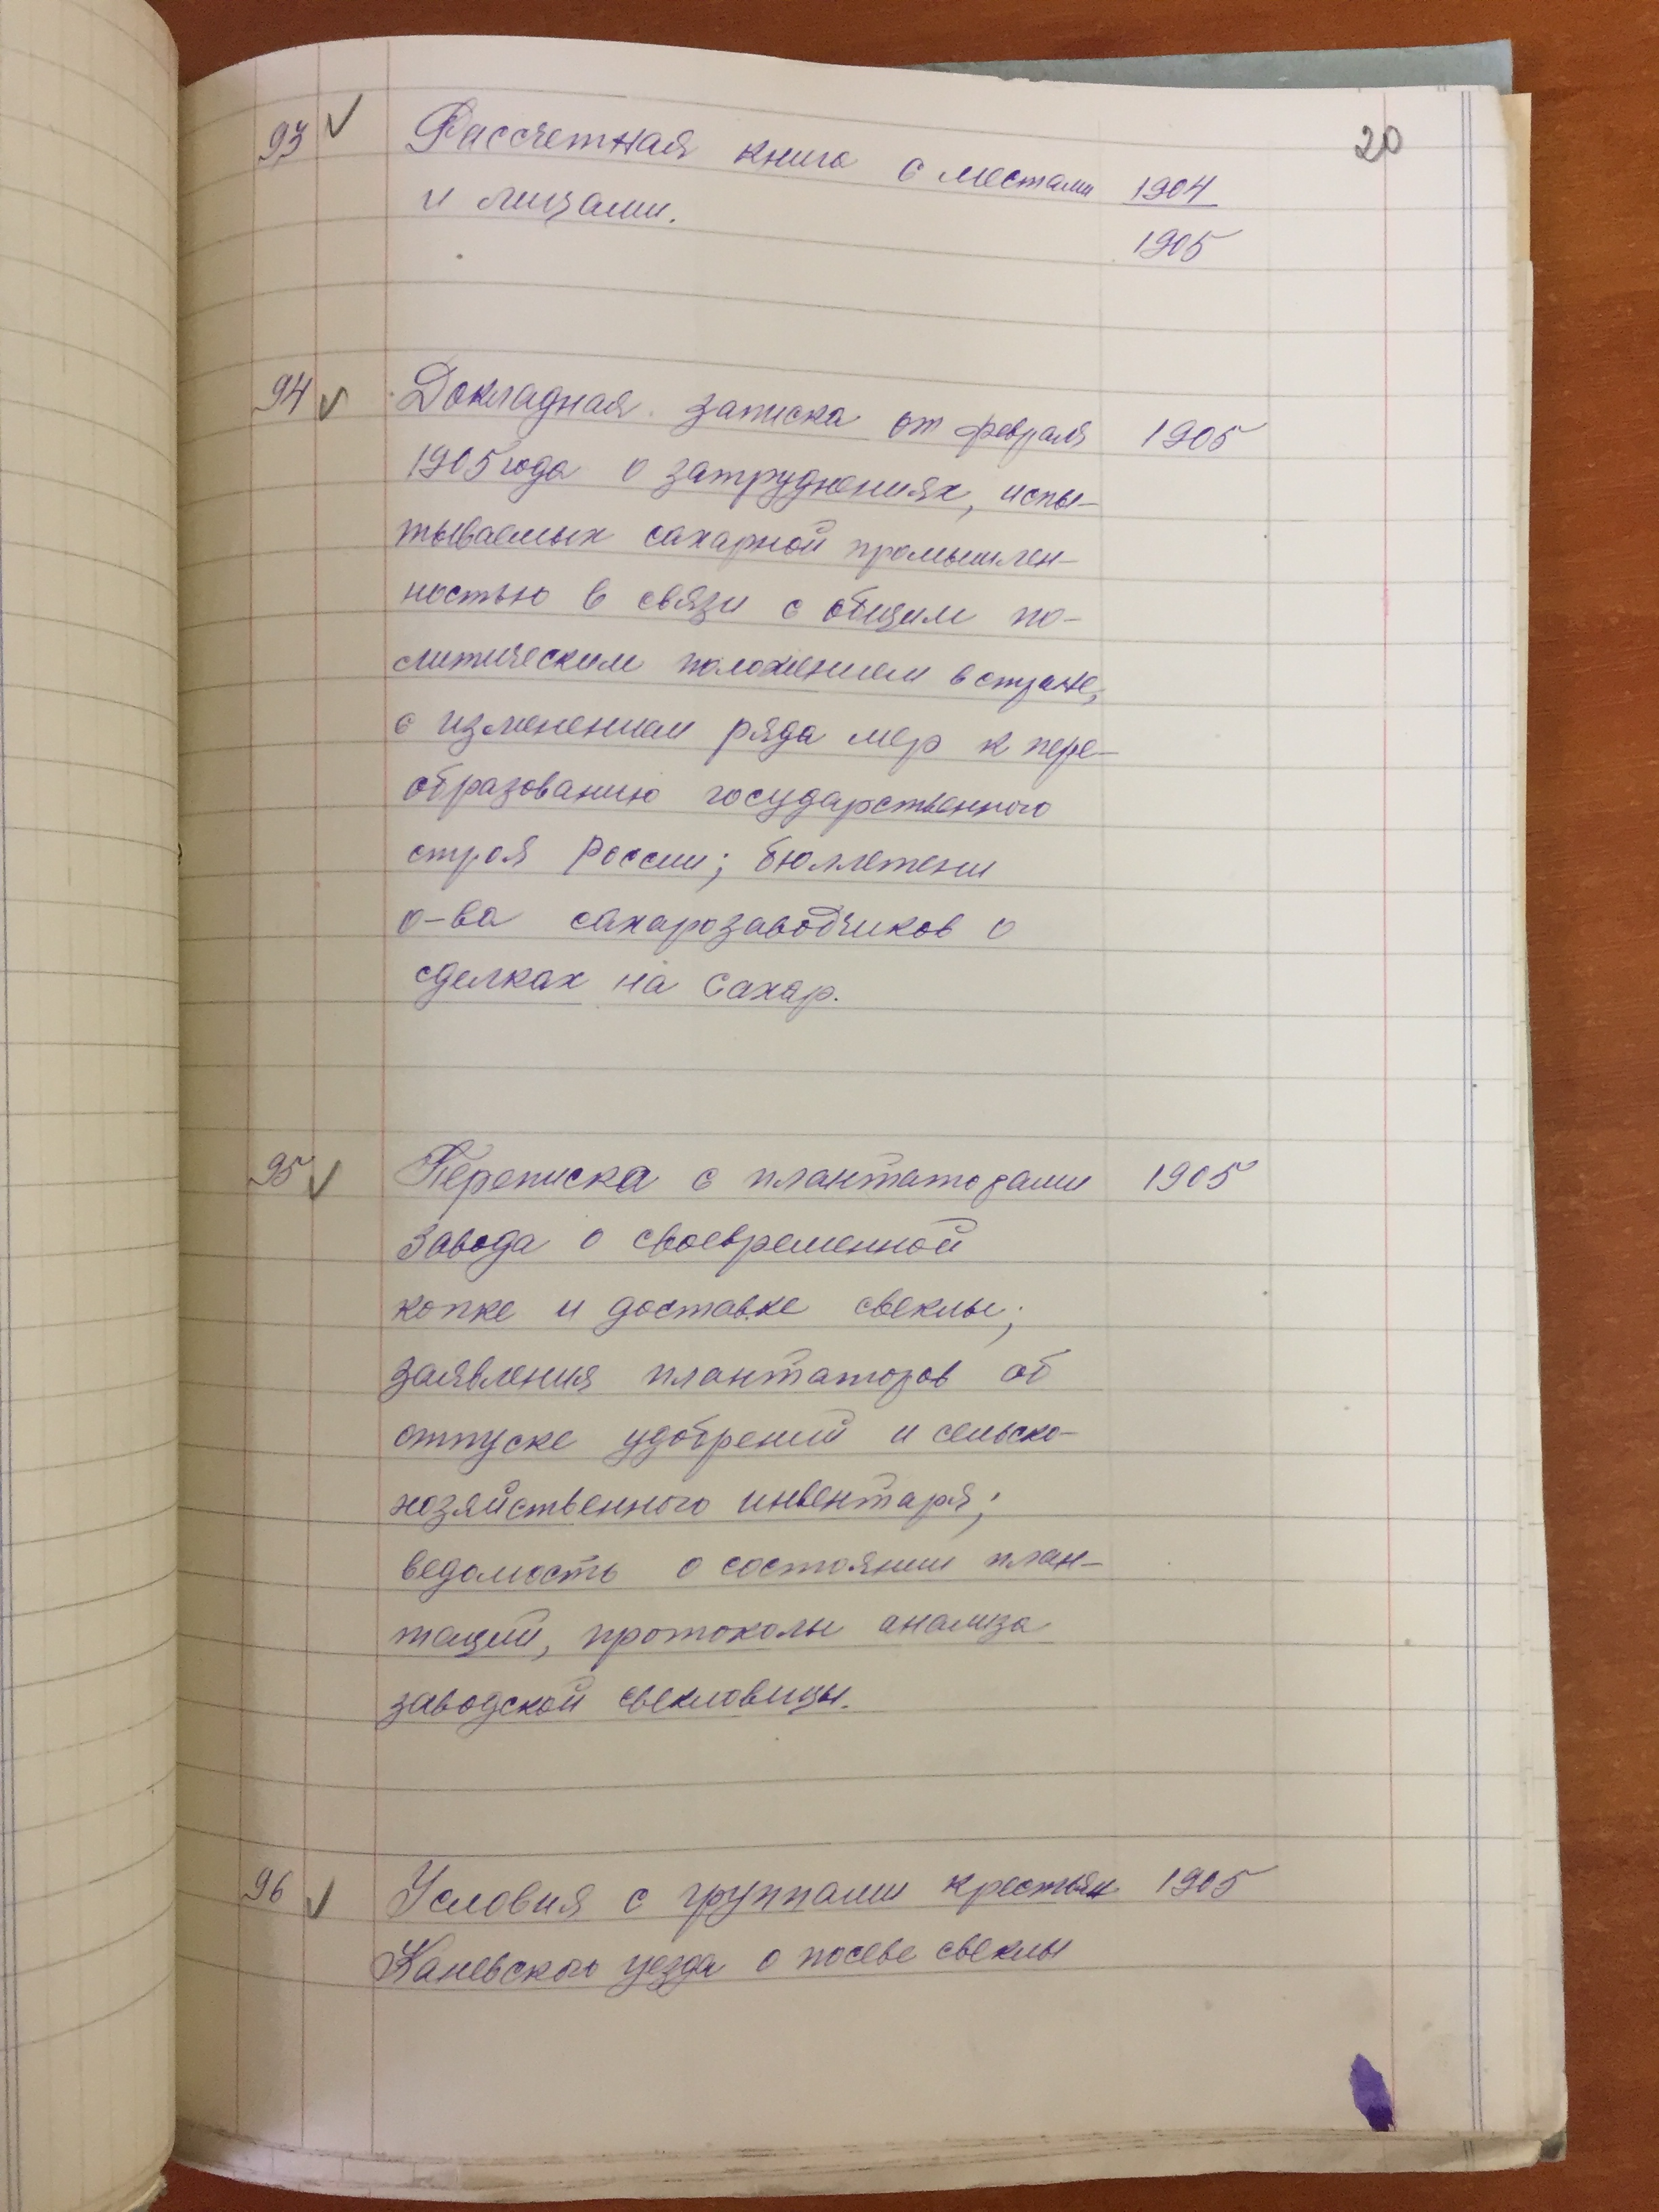 20
93 ✓ Рассчетная книга с местами 1904
и лицами. 1905
94 ✓ Докладная записка от февраля 1905
1905 года о затруднениях, испы-
тываемых сахарной промышлен-
ностью в связи с общим по-
литическим положением в стране,
с изменением ряда мер к пере-
образованию государственного
строя России; бюллетени
о-ва сахарозаводчиков о
сделках на сахар.
95 ✓ Переписка с плантаторами 1905
завода о своевременной
копке и доставке свеклы;
заявления плантаторов об
отпуске удобрений и сельско-
хозяйственного инвентаря;
ведомость о состоянии план-
таций, протоколы анализа
заводской свекловицы.
96 ✓ Условия с группами крестьян 1905
Каневского уезда о посеве свеклы